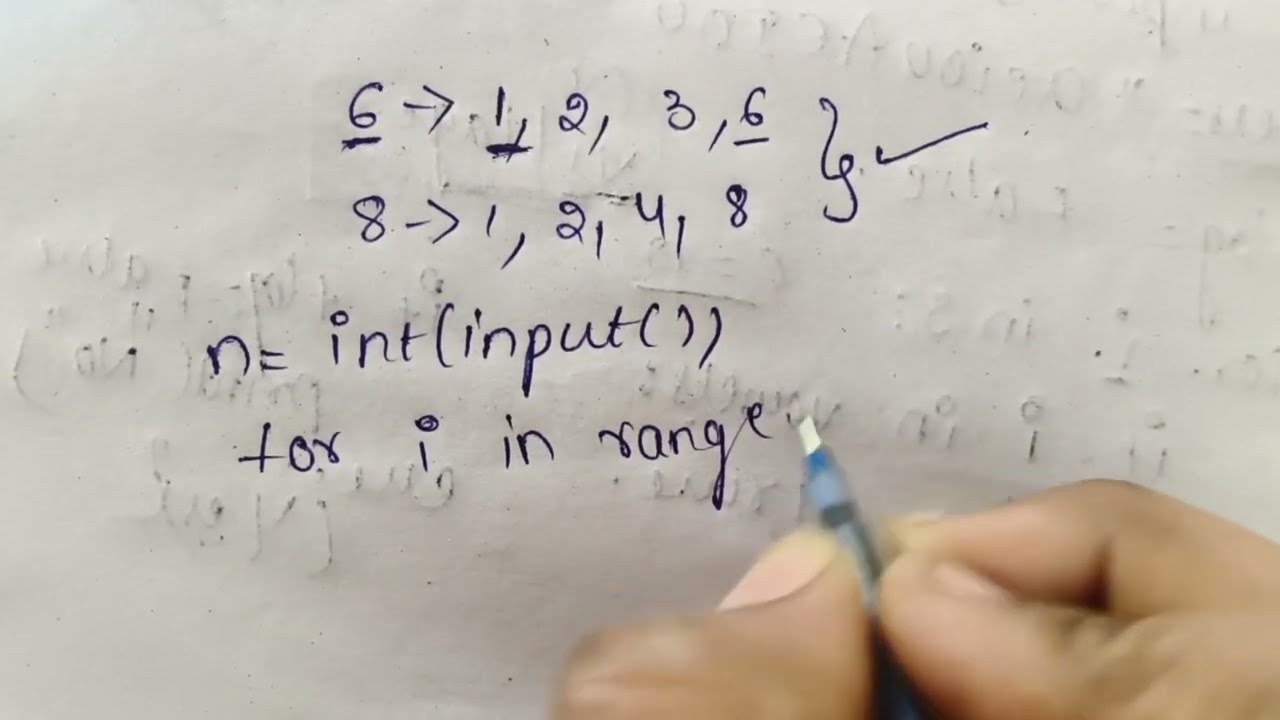 6 -> 1, 2, 3, 6 }✓
8 -> 1, 2, 4, 8
n= int(input())
for i in range